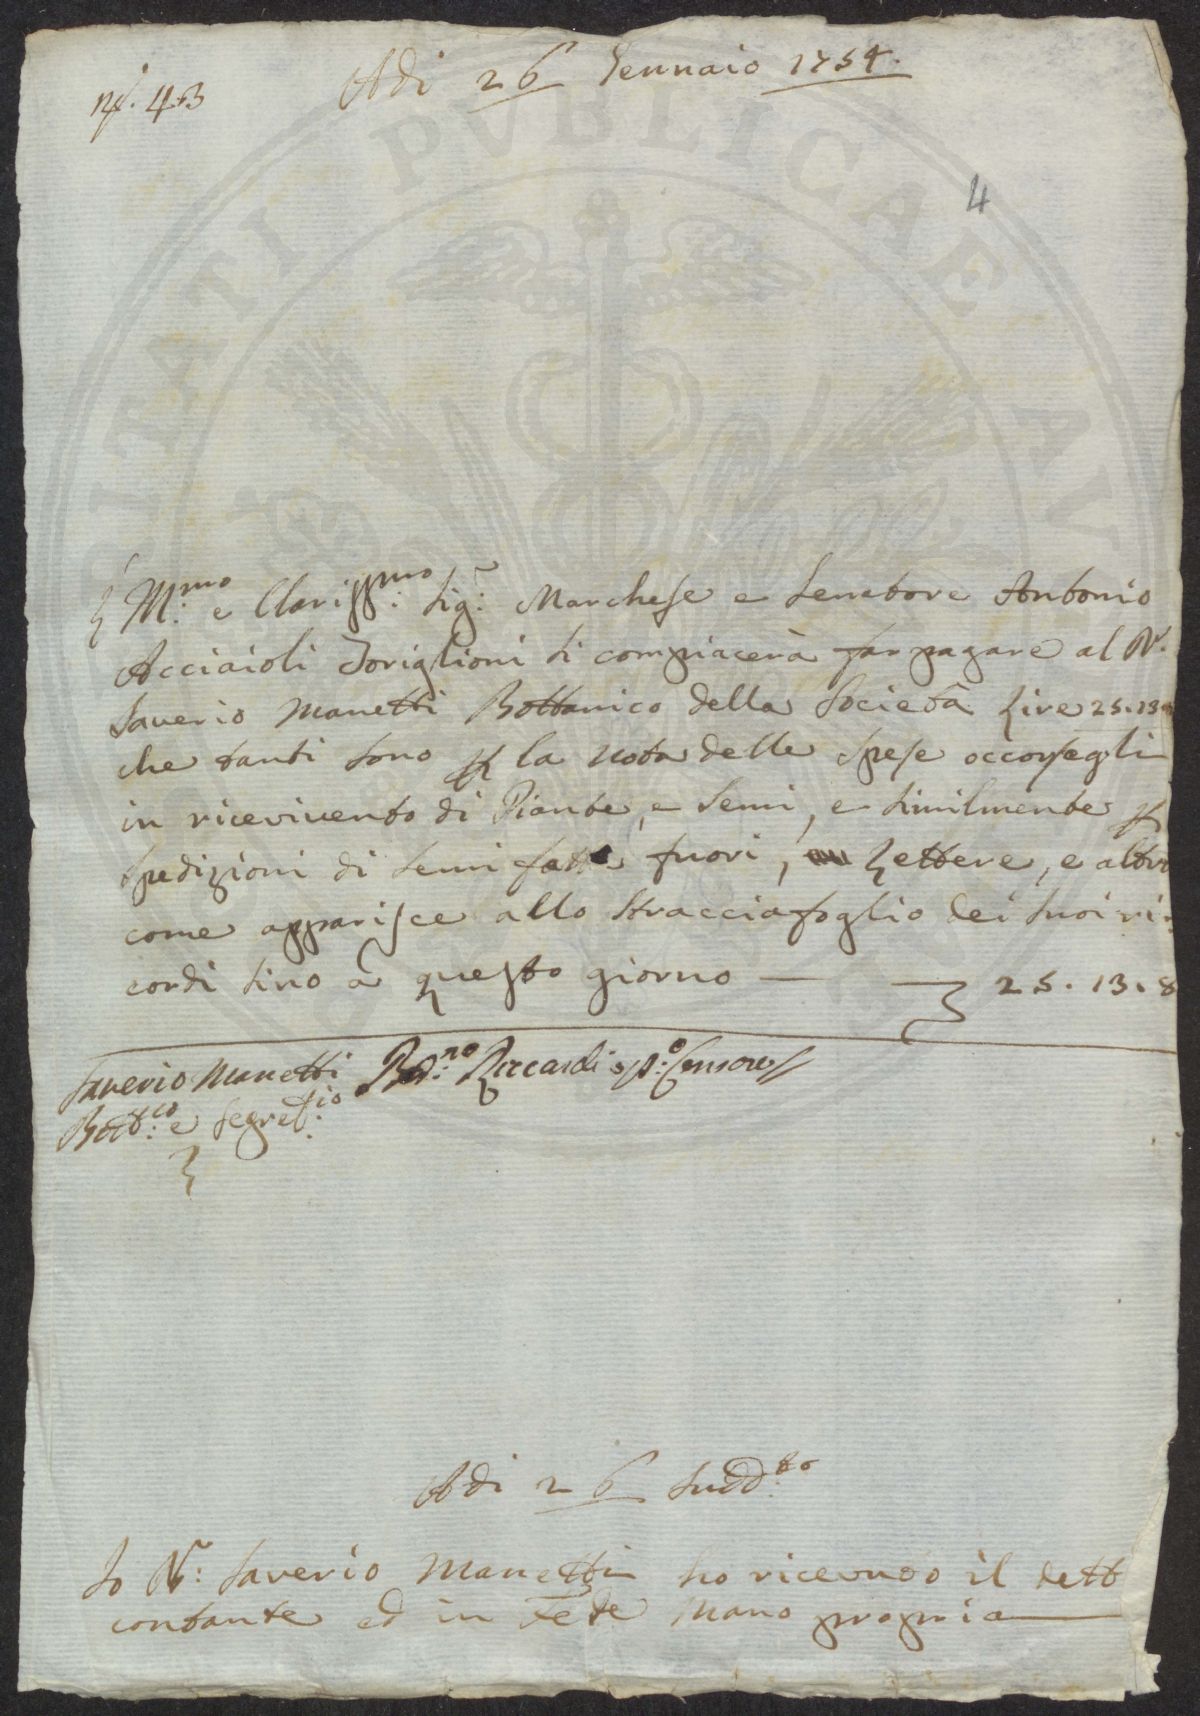 N.° 43
Adi 26 Gennaio 1754.
4
L'Ill.mo e Clariss.mo Sig.r Marchese e Senatore Antonio
Acciaioli Toriglioni si compiacerà far pagare al D.r
Saverio Manetti Bottanico della Società Lire 25.13
che tanti sono p la nota delle spese occorsegli
in ricevimento di Piante, e Semi, e similmente p
spedizioni di semi fatte fuori, Lettere, e altro
come apparisce allo stracciafoglio dei suoi ri-
cordi sino a questo giorno — 25.13.8
Saverio Manetti Bern.no Riccardi Censore
Bott.co e Segret.io
Adi 26 Sudd.to
Io D.r: Saverio Manetti ho ricevuto il dett
contante ed in Fede mano propria
PVBLICAE